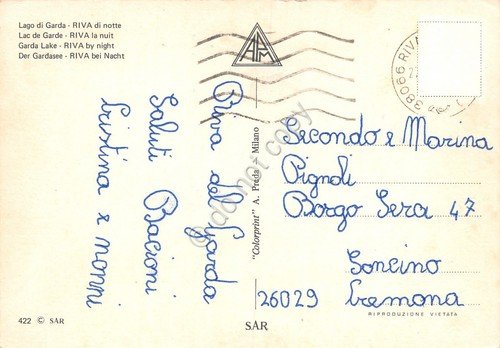 Lago di Garda - RIVA di notte
Lac de Garde - RIVA la nuit
Garda Lake - RIVA by night
Der Gardasee - RIVA bei Nacht
APM
38066 RIVA
Riva del Garda
Saluti Bacioni
Cristina e nonni
"Colorprint" A. Preda - Milano
do not copy
Secondo e Marina
Pignoli
Borgo Sera 47
26029 Soncino
Cremona
RIPRODUZIONE VIETATA
422 © SAR
SAR